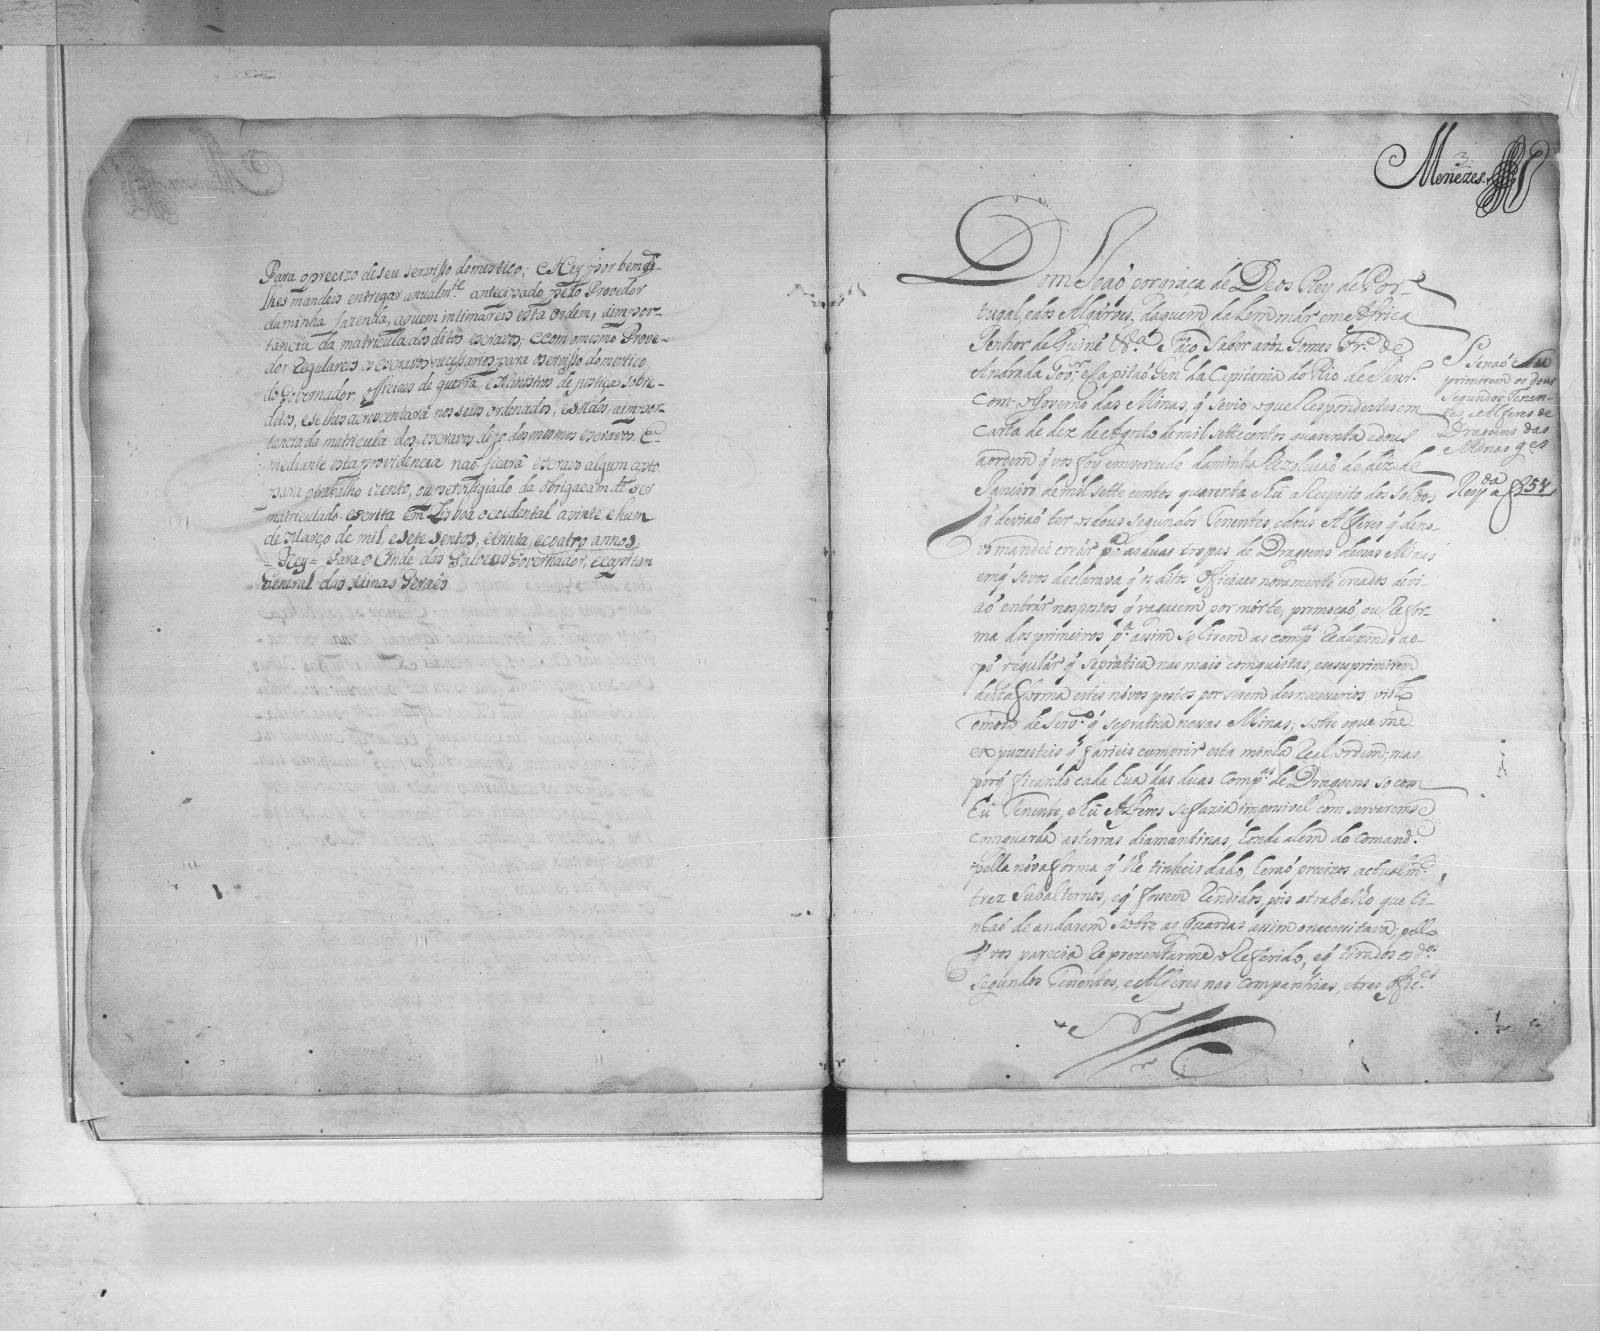 Para o precizo de seu servisso domestico; e Hey por bem q̃
lhes mandeis entregar anualm.te antecipado pelo Provedor
da minha fazenda, aquem intimareis esta ordem, a impor-
tancia da matricula dos ditos escravos; e com o mesmo Prove-
dor regulareis os escravos necessarios para o servisso domestico
do Governador, officiaes de guerra, e Ministros de justiça sobre-
ditos, e se lhes acrescentará nos seus ordenados, e soldos, a impor-
tancia da matricula dos escravos digo dos mesmos escravos. E
mediante esta providencia não ficará escravo algum capto
para o trabalho izento, ou previligiado da obrigaçam de ser
matriculado. escrita em Lisboa occidental a vinte e hum
de Março de mil e sete sentos, e trinta, e coatro annos
= Rey = Para o Conde das Galveas Governador, e capitam
General das Minas Geraes
Menezes
3
Dom João por graça de Deos Rey de Por-
tugal, e dos Algarves, daquem, e dalem már em Africa
Senhor de Guiné &.a Faço saber a vós Gomes Fr.e de
Andrada Gov.or, e Capitão Gen.al da Capitania do Rio de Janr.o
com o Governo das Minas, q̃ se vio o que respondestes em
carta de dez de Agosto de mil sette centos quarenta e dous
a ordem q̃ vos foy em vertude da minha Rezolução de diz de
Janeiro de mil sette centos quarenta e hũ a Respeito dos soldos,
q̃ devião ter os dous segundos Tenentes, e dous Alferes q̃ de no-
vo mandei creár p.a as duas tropas de Dragoens dessas Minas
em q̃ se vos declarava q̃ os ditos Officiaes novamente creados devi-
ão entrár nos postos q̃ vagacem por mórte, promoção, ou Refor-
ma dos primeiros p.a assim se hirem as comp.as reduzindo ao
pé regulár q̃ se prática nas mais conquistas, e se suprimirem
desta forma estes nóvos postos por serem desnecessarios, visto
o módo de serv.o q̃ se prática nessas Minas; sobre o que me
expuzesteis q̃ farieis cumprir esta minha Real ordem; mas
porq̃ ficando cada hũa das duas Comp.as de Dragoens só com
hũ Tenente, e hũ Alferes se fazia impossivel com servarem se
com guarda as terras diamantinas, honde alem do Comand.e
pella nóva forma q̃ lhe tinheis dado, herão precizos actualm.te
trez subalternos, e q̃ fossem rendidos, pois o trabalho que ti-
nhão de andarem sobre as Guardas assim o necessitava; pello
q̃ vos parecia Reprezentarme o Referido, e q̃ tirados os d.os
segundos Tenentes, e Alferes nas Companhias, e tres Offic.es
Se não
primirem os dous
segundos Tenen-
tes, e Alferes de
Dragoens das
Minas g.es
Resp.da a f 257